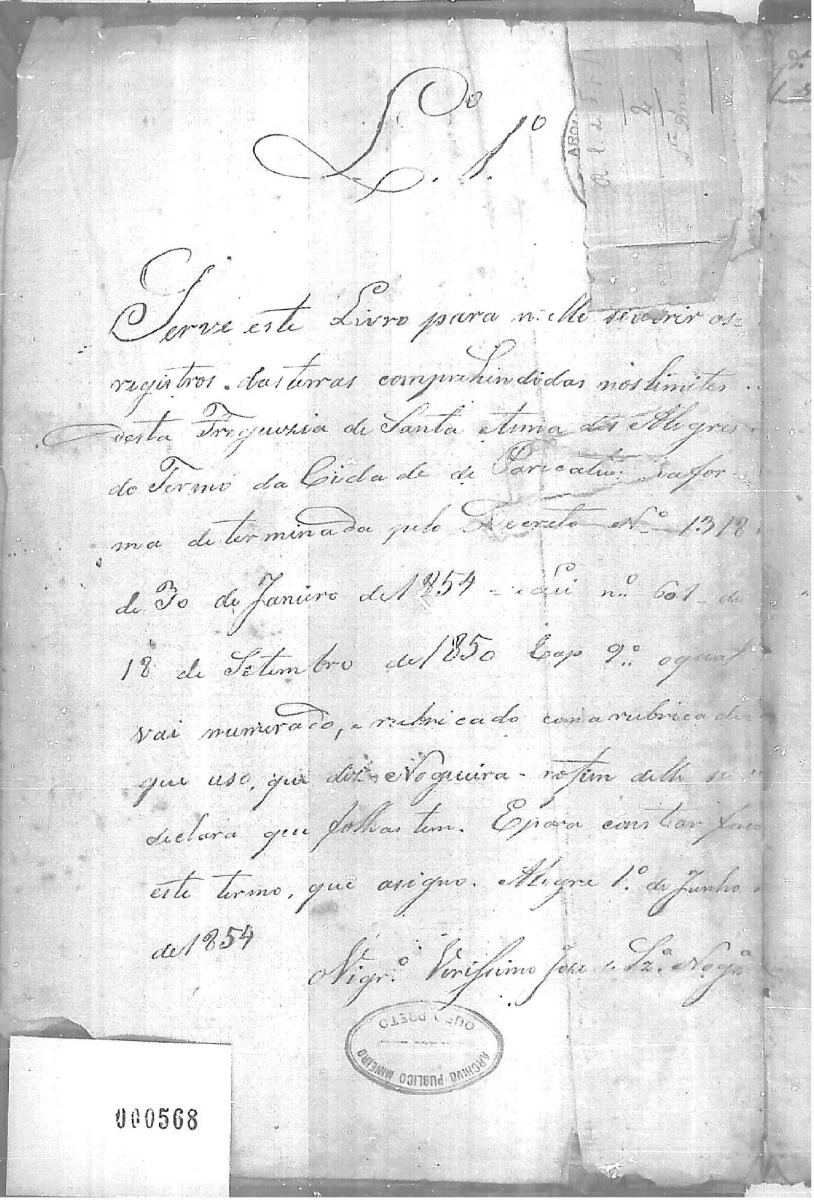 L.º 1.º
Serve este Livro para n'elle se abrir os
registros das terras comprehendidas nos limites
desta Freguezia de Santa Anna dos Alegres
do Termo da Cidade de Paracatú na for-
ma determinada pelo Decreto Nº 1318
de 30 de Janeiro de 1854 - e Lei nº 601 de
18 de Setembro de 1850 Cap 9º o qual
vai numerado, e rubricado com a rubrica de
que uso, que diz - Nogueira - no fim delle se
declara que folhas tem. E para constar faço
este termo, que asigno. Alegre 1º de Junho
de 1854
O Vigrº Verissimo Joze de Szª Nogrª
ARCHIVO PUBLICO MINEIRO
OURO PRETO
000568
2